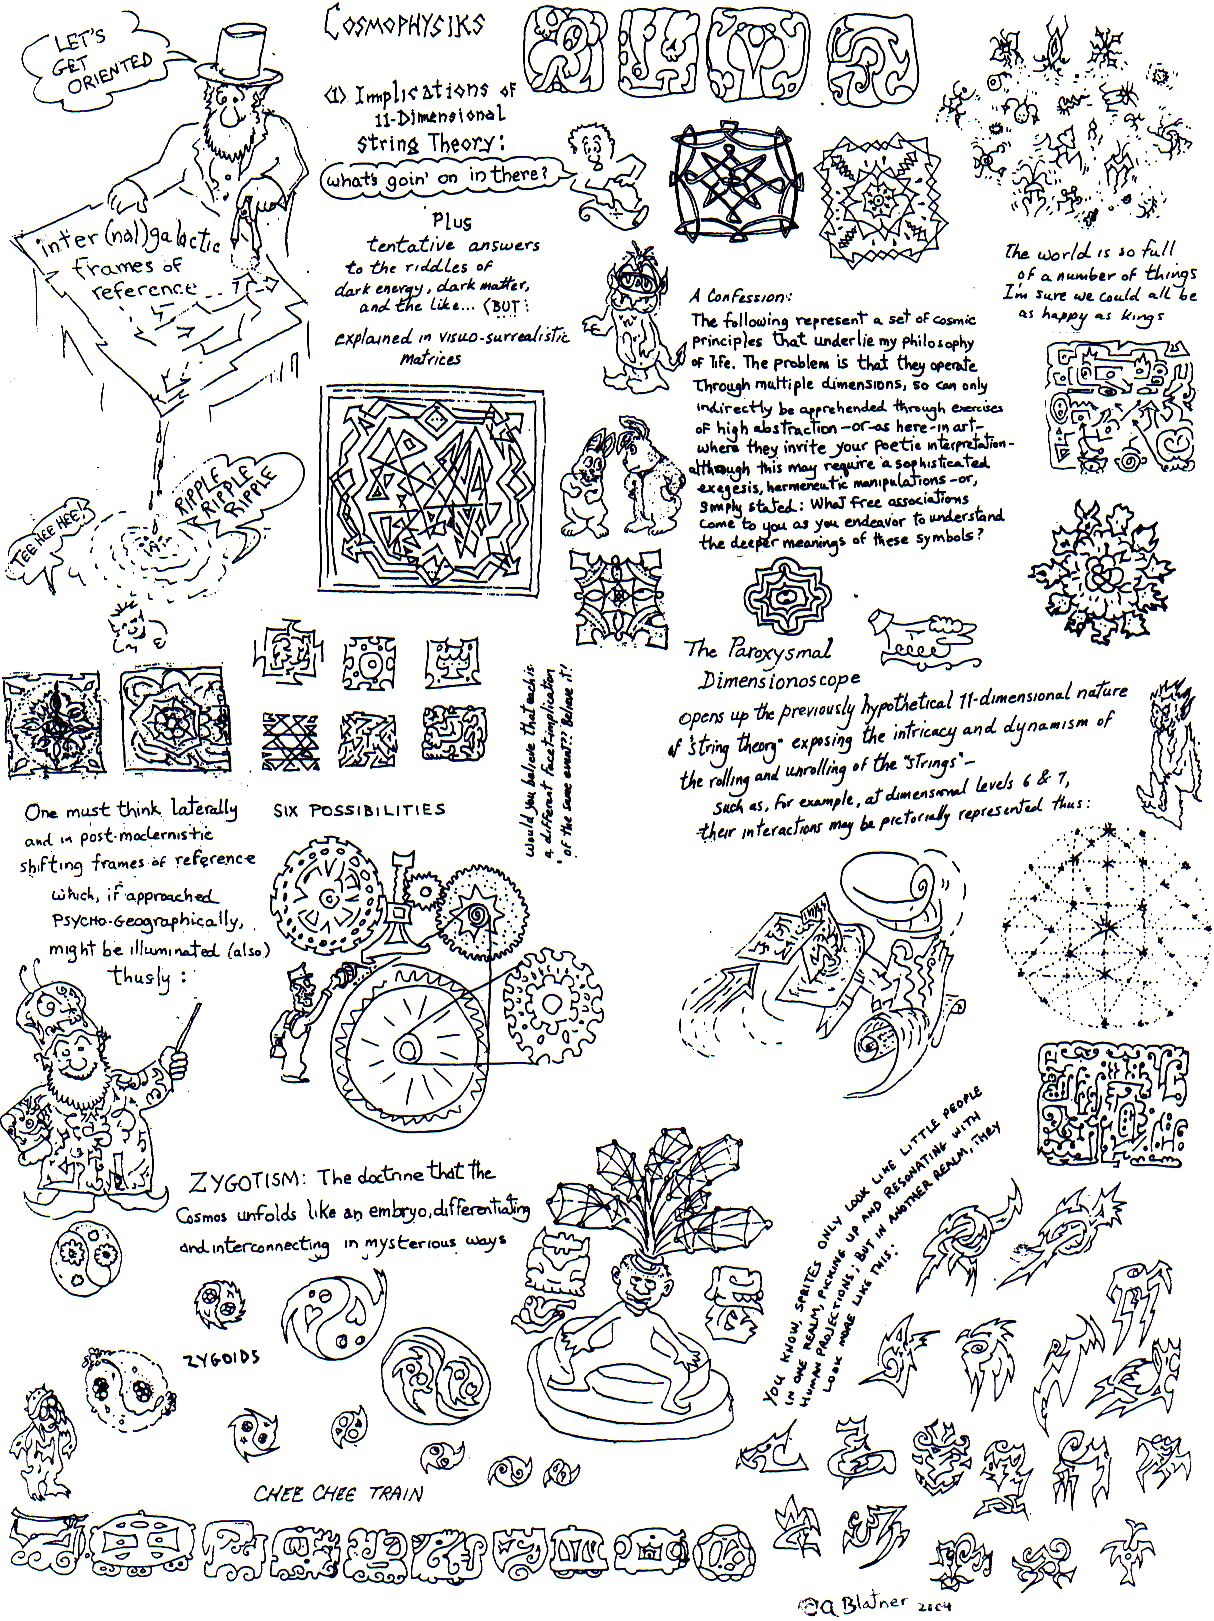 LET'S
GET
ORIENTED
COSMOPHYSIKS
<1> Implications of
11-Dimensional
String Theory:
what's goin' on in there?
Plus
tentative answers
to the riddles of
dark energy, dark matter,
and the like... (BUT:
explained in visuo-surrealistic
matrices
inter(nal)galactic
frames of
reference
TEE HEE HEE!
RIPPLE
RIPPLE
RIPPLE
The world is so full
of a number of things
I'm sure we could all be
as happy as kings
A Confession:
The following represent a set of cosmic
principles that underlie my philosophy
of life. The problem is that they operate
Through multiple dimensions, so can only
indirectly be apprehended through exercises
of high abstraction-or-as here-in art-
where they invite your poetic interpretation-
although this may require a sophisticated
exegesis, hermeneutic manipulations-or,
simply stated: What free associations
come to you as you endeavor to understand
the deeper meanings of these symbols?
The Paroxysmal
Dimensionoscope
opens up the previously hypothetical 11-dimensional nature
of "string theory" exposing the intricacy and dynamism of
the rolling and unrolling of the "strings"-
such as, for example, at dimensional levels 6 & 7,
their interactions may be pictorially represented thus:
Would you believe that each is
a different facet implication
of the same event?? Believe it!
SIX POSSIBILITIES
One must think laterally
and in post-modernistic
shifting frames of reference
which, if approached
PSYCHO-Geographically,
might be illuminated (also)
thusly:
ZYGOTISM: The doctrine that the
Cosmos unfolds like an embryo, differentiating
and interconnecting in mysterious ways
ZYGOIDS
YOU KNOW, SPRITES ONLY LOOK LIKE LITTLE PEOPLE
IN ONE REALM, PICKING UP AND RESONATING WITH
HUMAN PROJECTIONS; BUT IN ANOTHER REALM, THEY
LOOK MORE LIKE THIS:
CHEE CHEE TRAIN
Blatner 2004